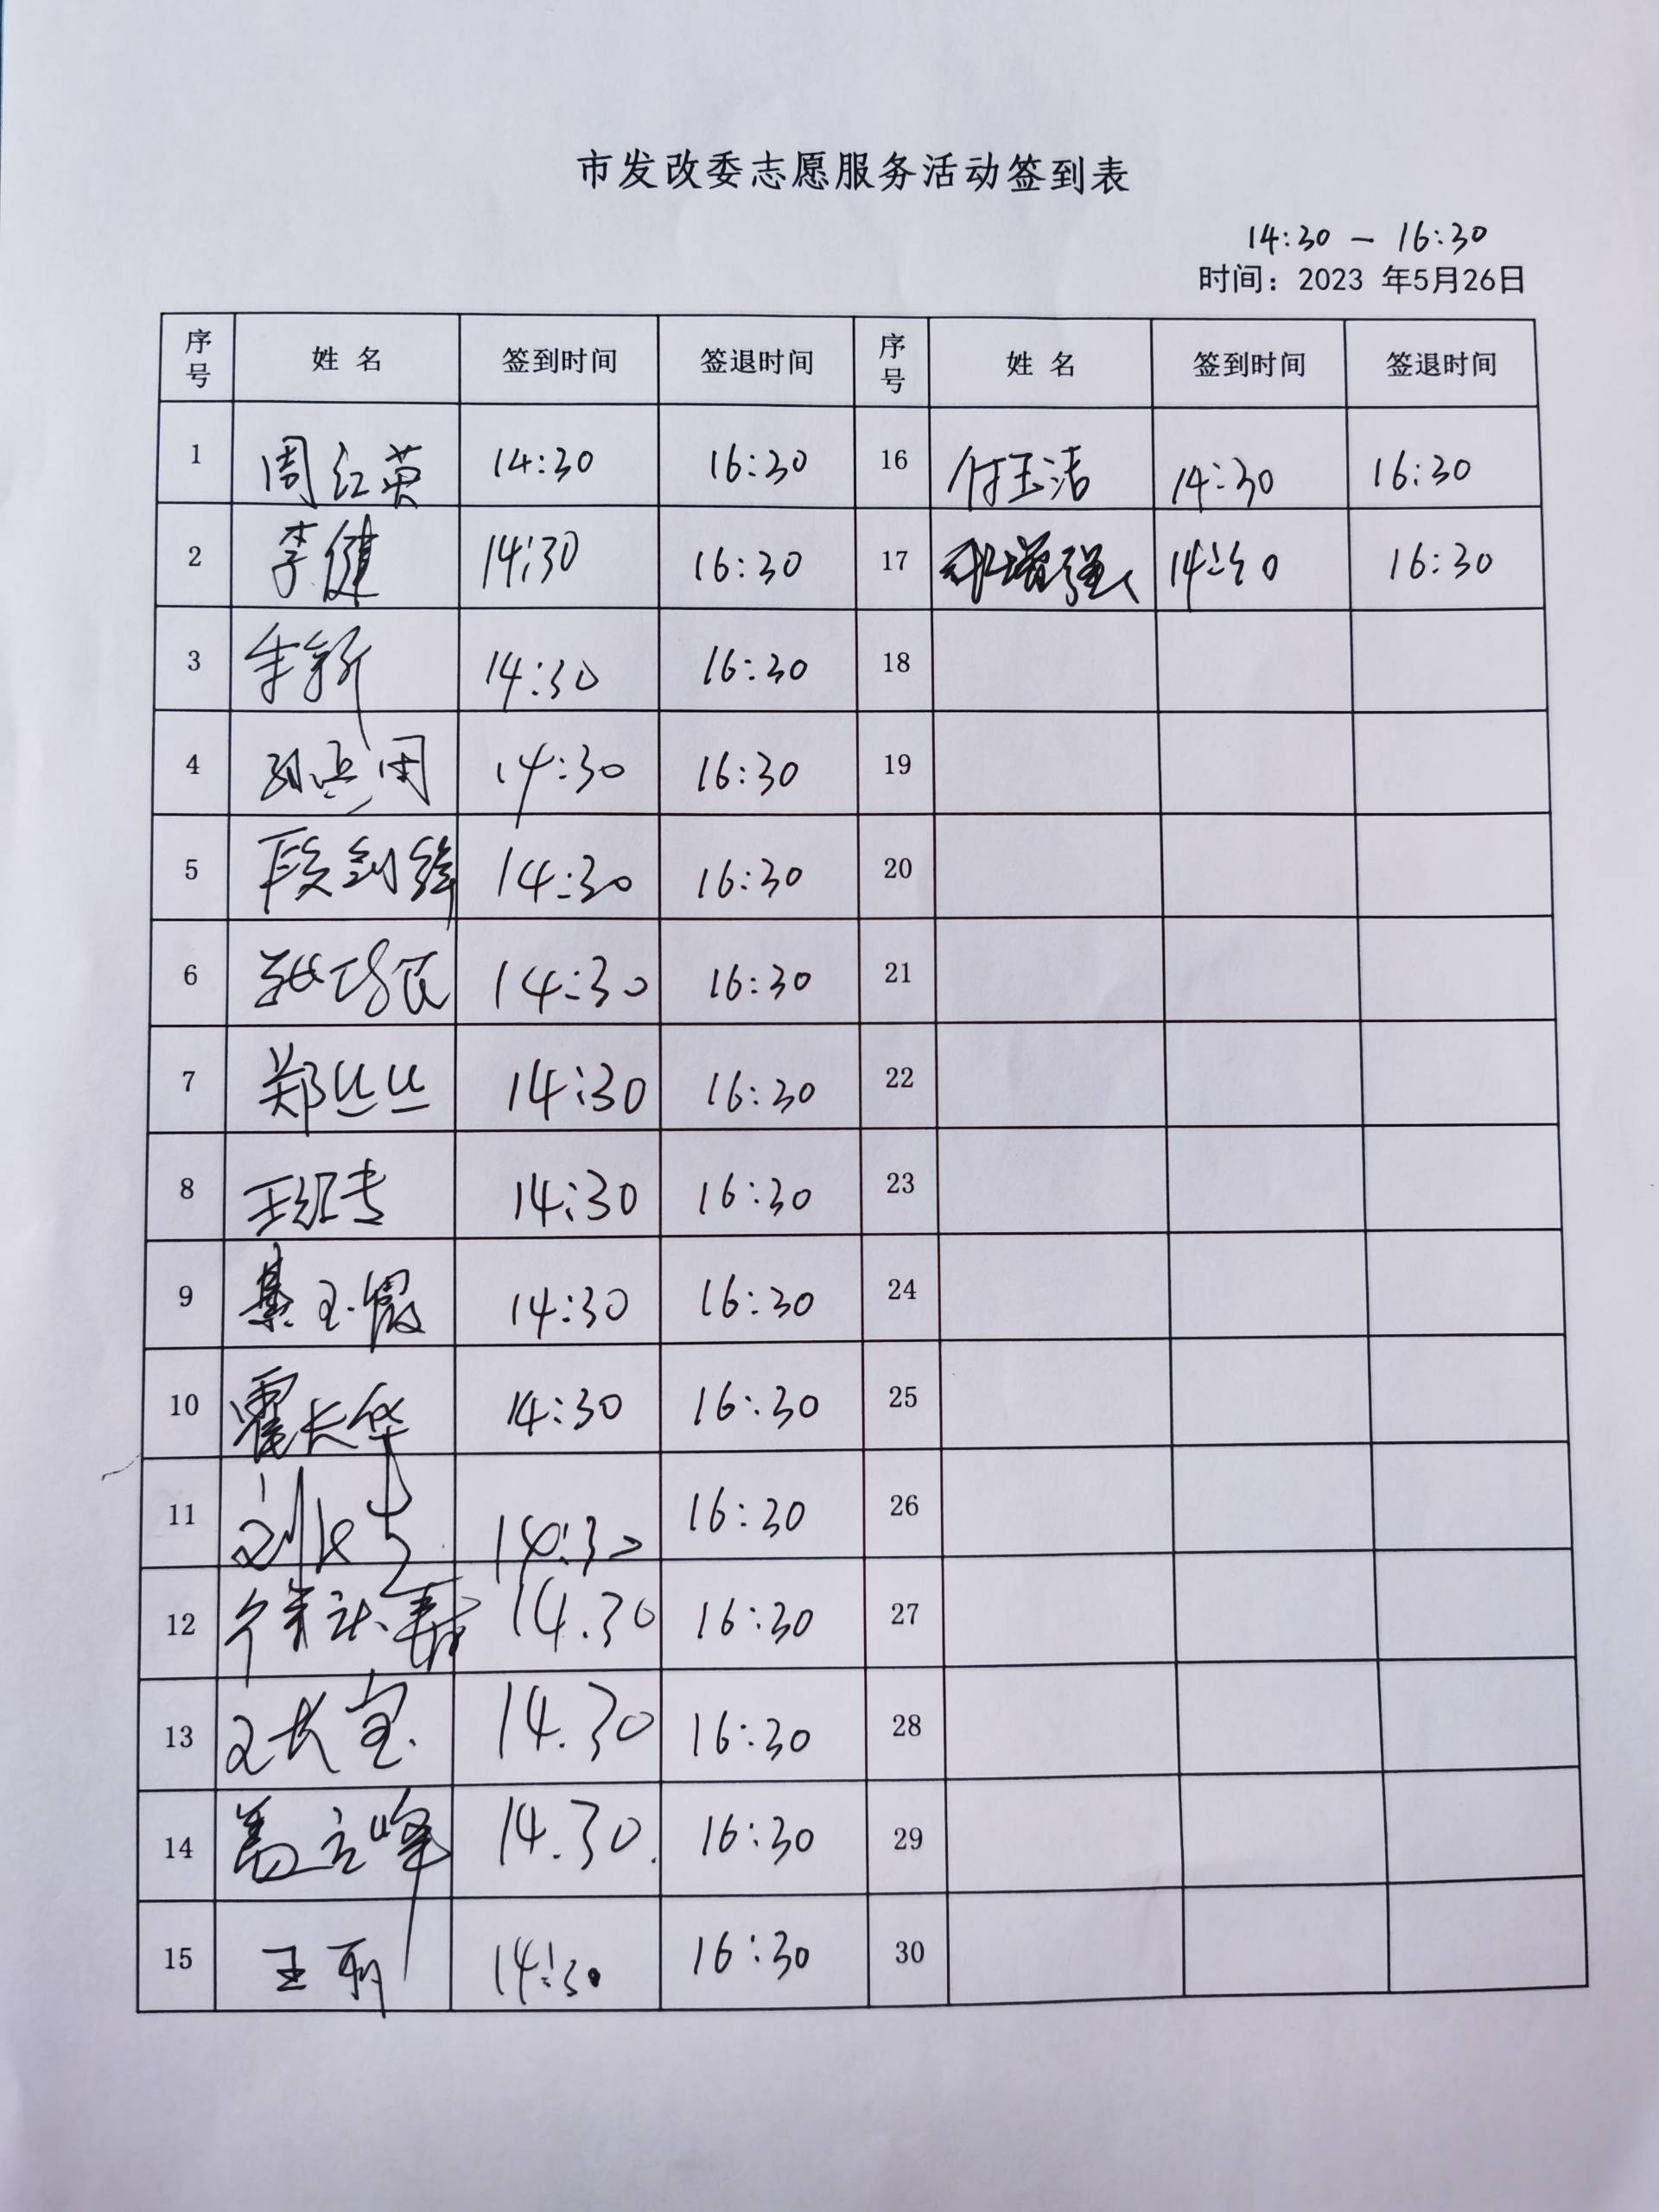 市发改委志愿服务活动签到表
14:30 — 16:30
时间：2023 年5月26日
序号 姓名 签到时间 签退时间 序号 姓名 签到时间 签退时间
1 周红英 14:30 16:30 16 付玉洁 14:30 16:30
2 李健 14:30 16:30 17 增强 16:30
3 14:30 16:30 18
4 14:30 16:30 19
5 段剑锋 14:30 16:30 20
6 14:30 16:30 21
7 郑丝丝 14:30 16:30 22
8 14:30 16:30 23
9 綦玉霞 14:30 16:30 24
10 霍长华 14:30 16:30 25
11 14:30 16:30 26
12 14.30 16:30 27
13 14.30 16:30 28
14 盖立峰 14.30. 16:30 29
15 王 14:30 16:30 30